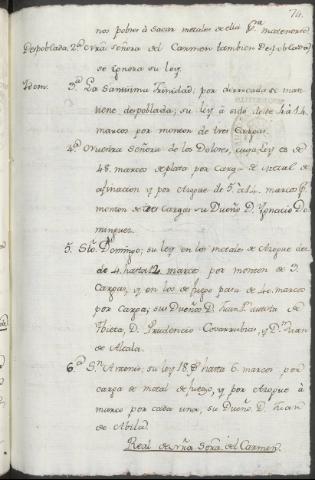 74.
nos pobres à sacar metales de ella pa. mantenerse
Despoblada. 2.a Nrã Señora del Carmen tambien Despoblada,
se ignora su ley.
Idem. 3.a La Santisima Trinidad, por derrocada se man
tiene despoblada; su ley à sido desde 4. à 14.
marcos por monton de tres Cargas.
4.a Nuestra Señora de los Dolores, cuya ley es de
48. marcos de plata por Carga de metal de
afinacion y por Azogue de 5. à 14. marcos pr.
monton de tres Cargas su Dueño D. Ygnacio Do
minguez.
5. Sto. Domingo; su ley en los metales de Azogue
de 4. hasta 12. marcos por monton de 3.
Cargas, y en los de fuego pasa de 40. marcos
por Carga; sus Dueños D. Juan Bautista de
D. Prudencio Covarrubias, y Dn. Juan
de Alcala.
6.a Sn. Antonio; su ley 18. hasta 6. marcos por
carga de metal de fuego, y por Azogue à
marco por cada una; su Dueño D. Juan
de Abila.
Real de Nrã Sorã. del Carmen.